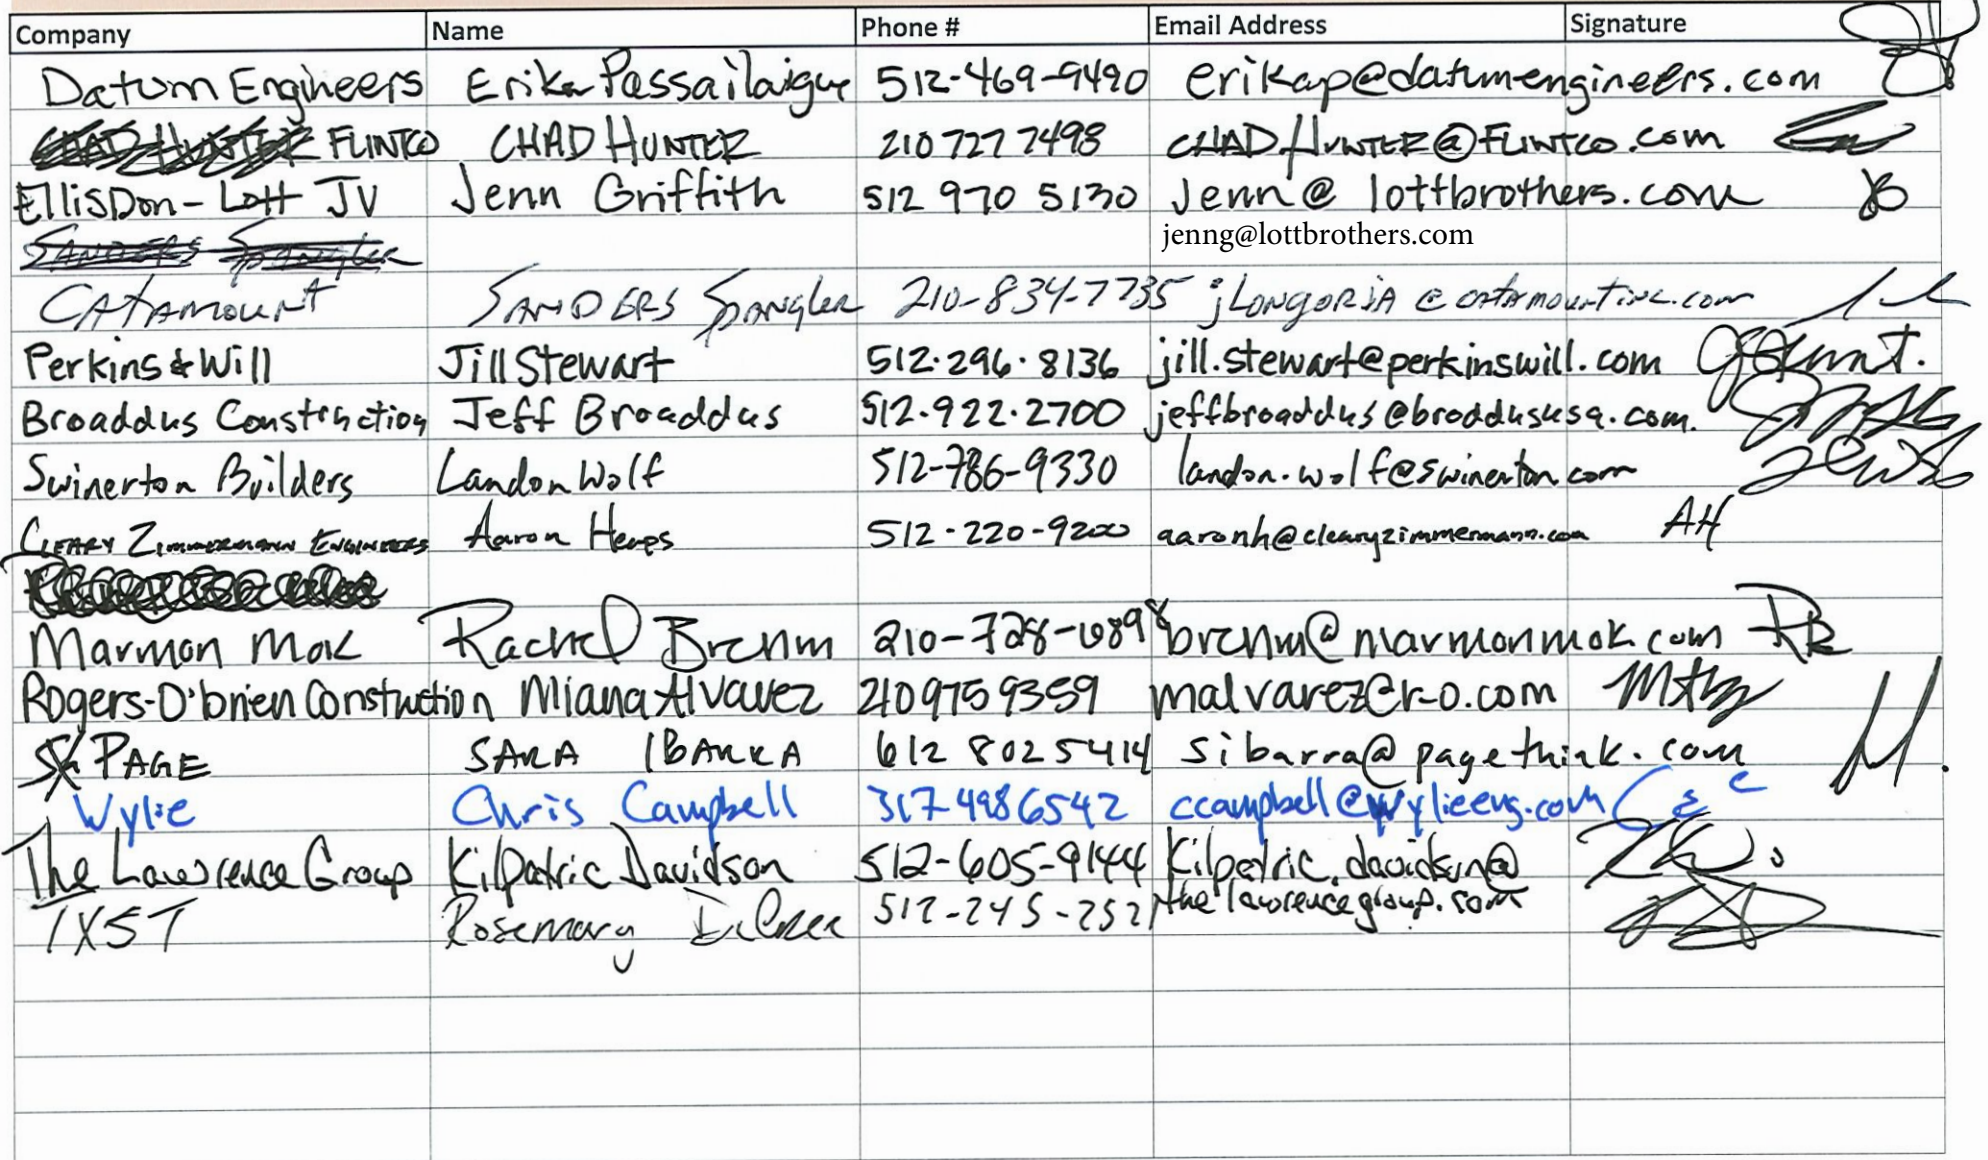 Company Name Phone # Email Address Signature
Datum Engineers Erika Passailaigue 512-469-9490 erikap@datumengineers.com
CHAD HUNTER FLINTCO CHAD HUNTER 210 727 7498 CHAD.HUNTER@FLINTCO.com
EllisDon-Lott JV Jenn Griffith 512 970 5130 Jenn@lottbrothers.com
jenng@lottbrothers.com
SANDERS Spangler
CATAMOUNT SANDERS Spangler 210-834-7735 jLONGORIA@catamountinc.com
Perkins & Will Jill Stewart 512.296.8136 jill.stewart@perkinswill.com
Broaddus Construction Jeff Broaddus 512.922.2700 jeffbroaddus@broddususa.com.
Swinerton Builders Landon Wolf 512-786-9330 landon.wolf@swinerton.com
CLEARY ZIMMERMANN ENGINEERS Aaron 512-220-9200 aaronh@clearyzimmermann.com AH
Marmon Mok Rachel Brehm 210-728-6898 brehm@marmonmok.com RB
Rogers-O'brien Constuction Miana Alvarez 210 975 9359 malvarez@r-o.com
PAGE SARA IBARRA 612 802 5414 sibarra@pagethink.com
Wylie Chris Campbell 317 498 6542 ccampbell@wylieeng.com
The Lawrence Group Kilpatric Davidson 512-605-9144 Kilpatric.davidson@
thelawrencegroup.com
TXST Rosemary 512-245-2521